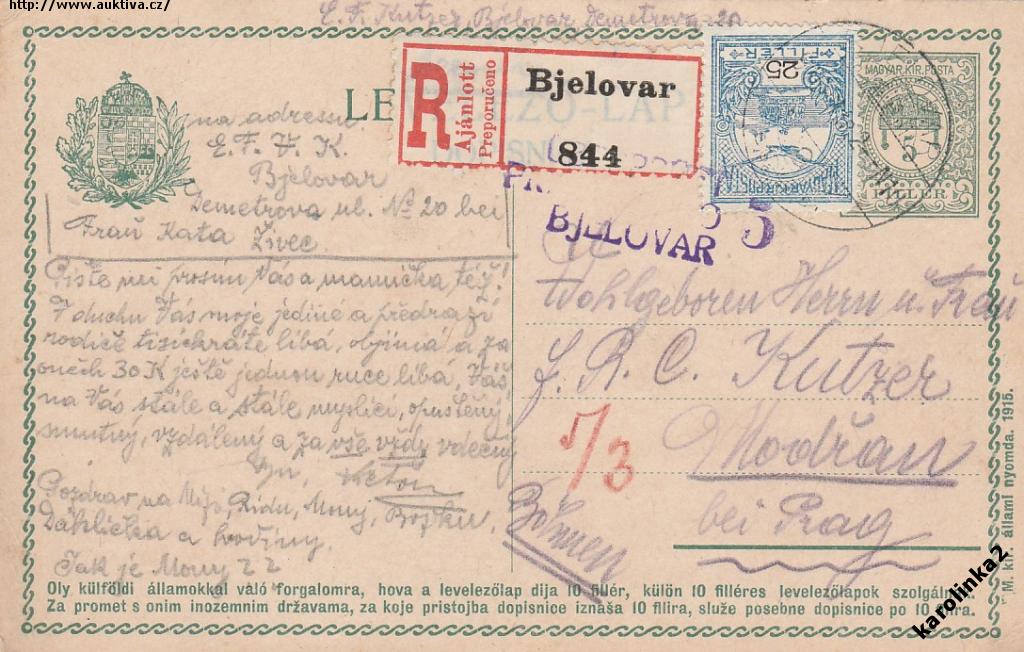 http://www.auktiva.cz/
E. F. Kutzer, Bjelovar, Demetrova 20
na adressu
E. F. V. K.
Bjelovar
Demetrova ul. No 20 bei
Frau Kata Živec.
LE
EZŐ-LAP
DOPISN
R
Ajánlott
Preporučeno
Bjelovar
844
25
FILLÉR
MAGYAR KIR. POSTA
MAGYAR KIR. POSTA
5
FILLÉR
BJELOVAR
5
Pište mi prosím Vás a mamička též!
V duchu Vás moje jediné a předrazí
rodiče tisickráte líbá, objímá a za
oněch 30 K ještě jednou ruce líbá, Váš
na Vás stále a stále myslící, opuštěný
smutný, vzdálený a za vše vždy vděčný
syn,
Pozdrav na Mýs, Ridu, Mony, Bojku.
Dáhlička a hodiny.
Jak je Mony ??
Wohlgeboren Herrn u. Frau
J. R. C. Kutzer
Modřan
bei Prag
Böhmen
5/3
Oly külföldi államokkal váló forgalomra, hova a levelezőlap dija 10 fillér, külön 10 filléres levelezőlapok szolgál
Za promet s onim inozemnim državama, za koje pristojba dopisnice iznaša 10 filira, služe posebne dopisnice po 10 filira.
M. kir. állami nyomda. 1915.
karolinka2